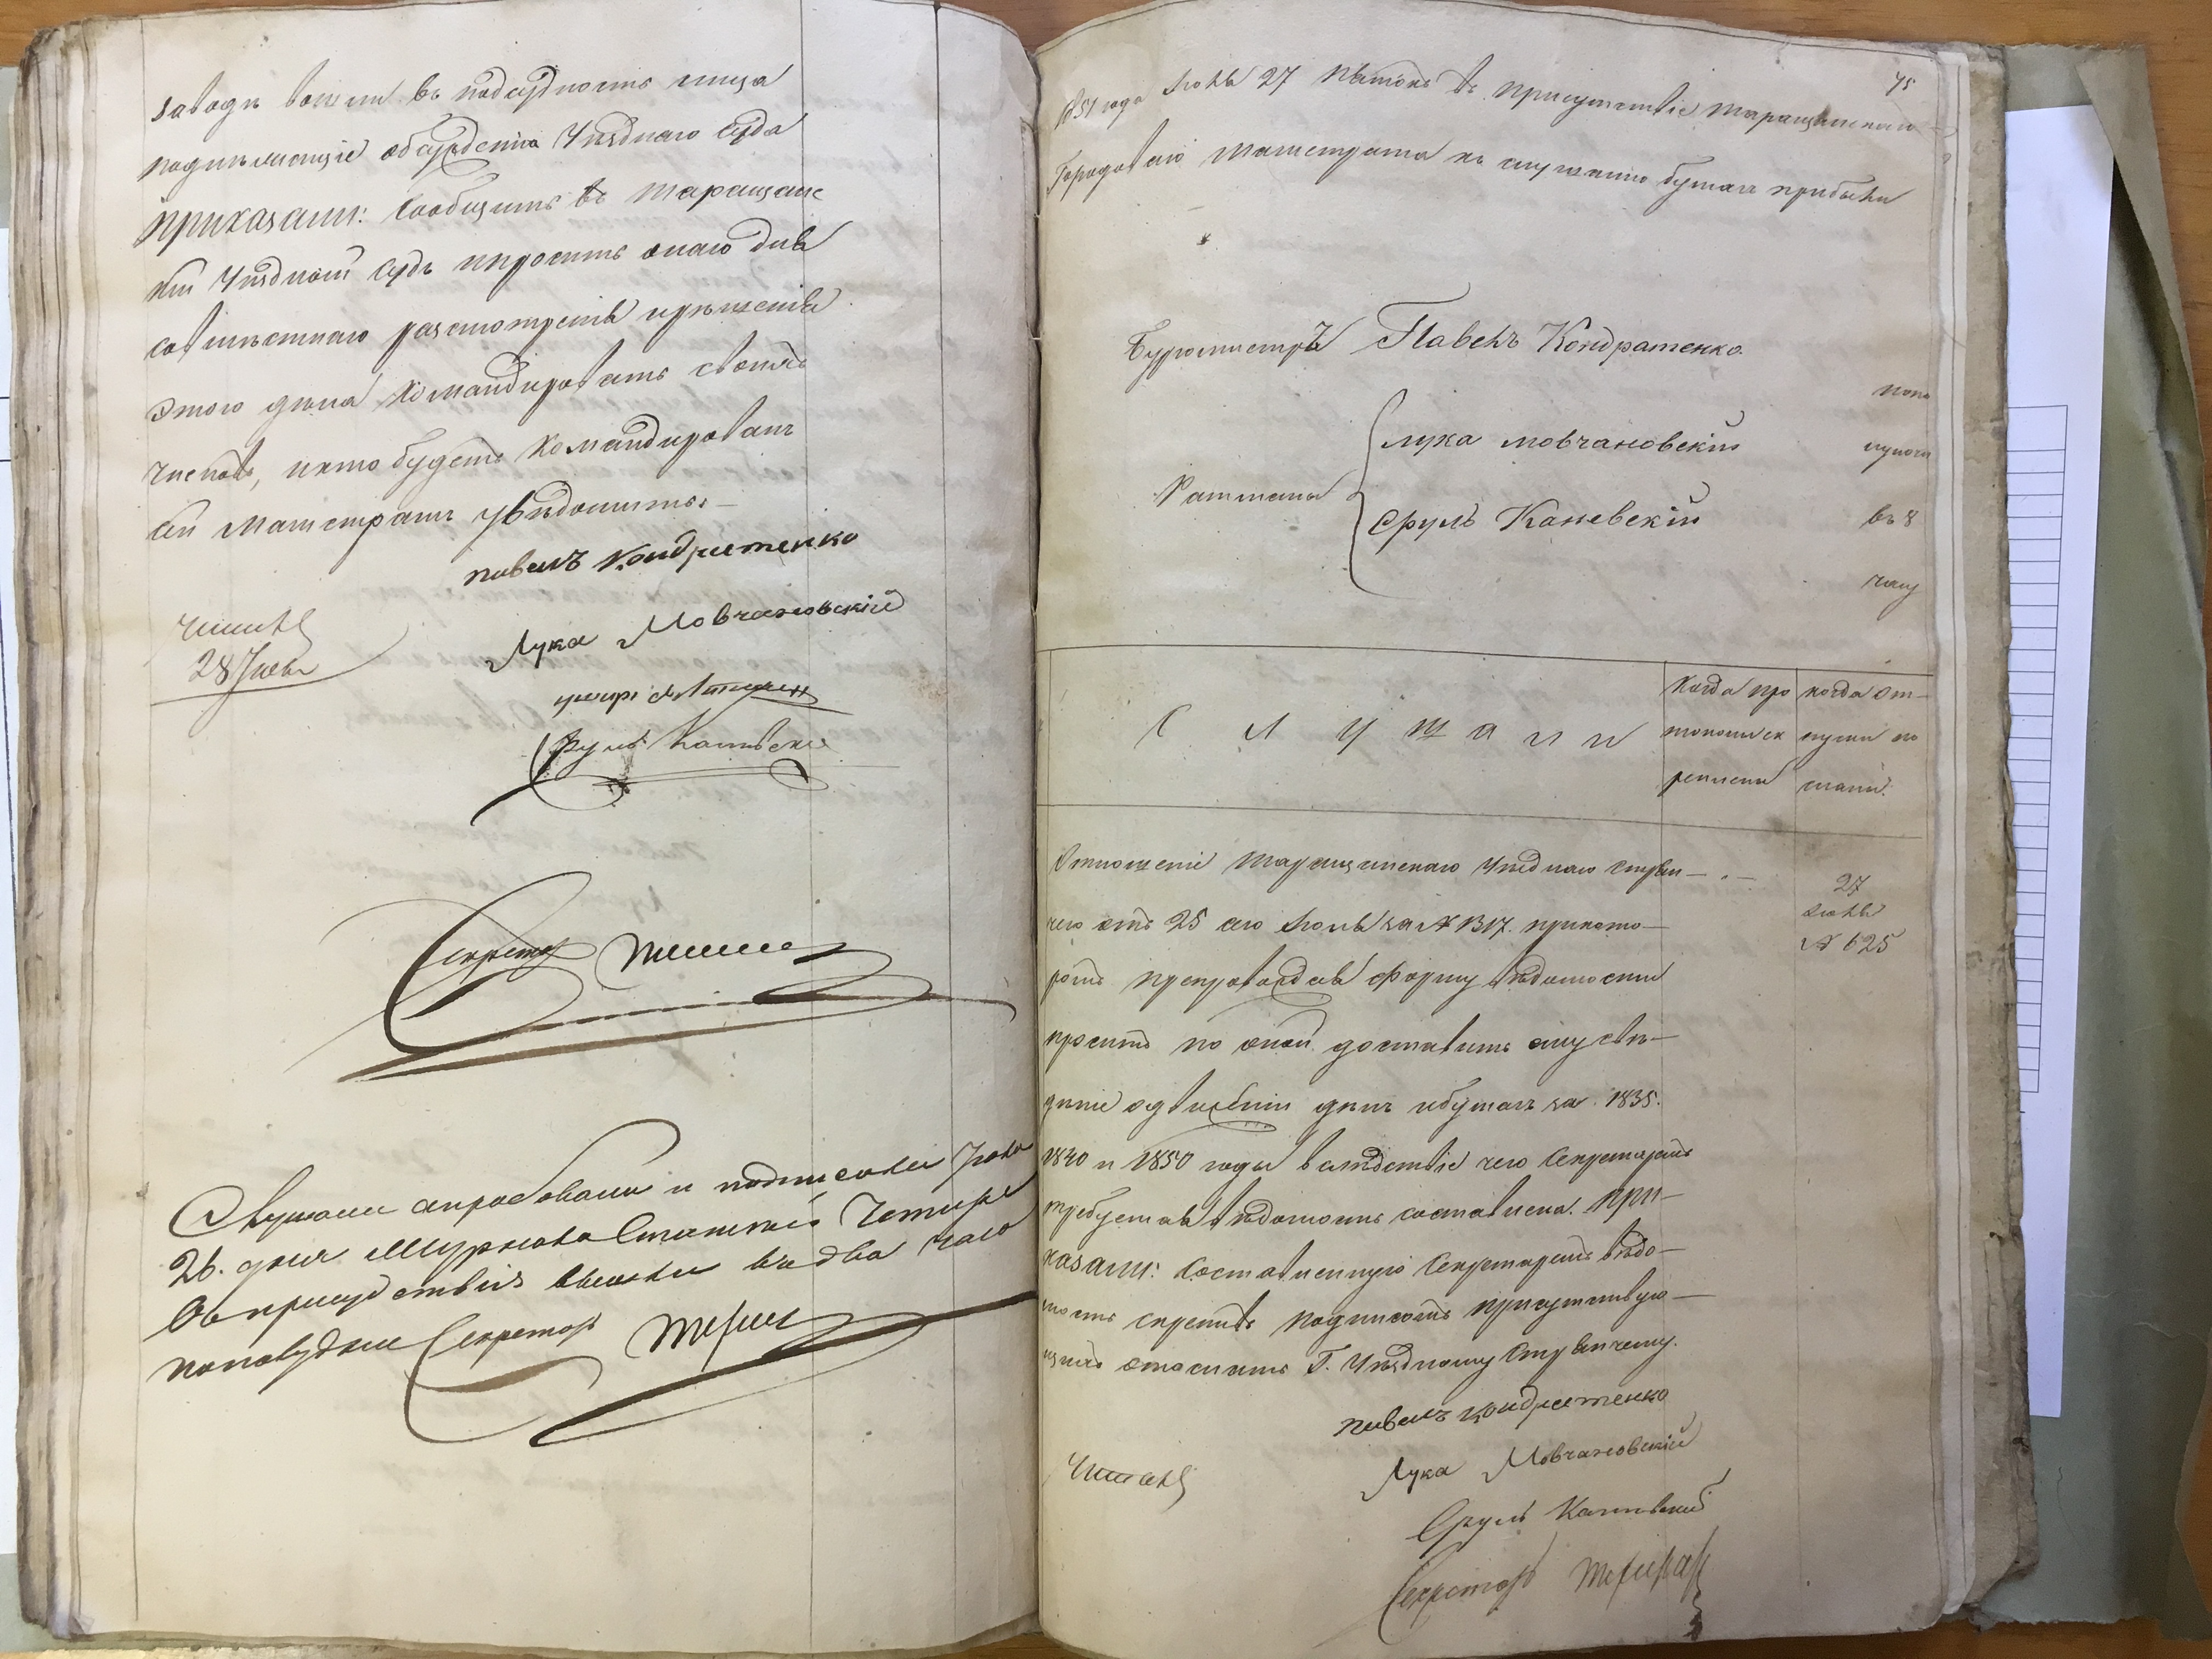 заводѣ вошли въ подсудность лица
подлежащіе обсужденію Уѣзднаго Суда
Приказали: Сообщить въ Таращанс
кій Уѣздный Судъ и просить онаго для
совмѣстнаго разсмотренія и рѣшенія
этого дѣла командировать своихъ
членовъ, и кто будетъ командированъ
сей Магистратъ увѣдомить.
павелъ Кондратенко
Лука Мовчановскій
Сруль Каневскій
Читалъ
28 Іюня
Секретарь
Слушали апробовали и подписали Іюня
26. дня Журнала Статей Четыре
Съ присудствія вышли въ два часа
пополудни Секретарь
75
1851 года Іюня 27 Пятокъ въ присутствіе Таращанскаго
Городоваго Магистрата къ слушанію бумагъ прибыли
Бургомистръ Павелъ Кондратенко
Ратманы
Лука Мовчановскій
Сруль Каневскій
попо
луночи
въ 8
часу
Слушали
Когда про
токолы ск
реплены
когда от-
пуски по
сланы.
Отношеніе Таращанскаго Уѣзднаго Стряп-
чего отъ 25 сего Іюня за № 1317. при кото-
ромъ препровождая форму вѣдомости
проситъ по оной доставить ему свѣ-
деніе о движеніи дѣлъ и бумагъ за 1835.
1840 и 1850 годы в слѣдствіе чего Секретаремъ
требуемая вѣдомость составлена. При-
казали: Составленную Секретаремъ вѣдо-
мость скрепивъ подписомъ присутствую-
щихъ отослать Г. Уѣздному Стряпчему.
27
Іюня
№ 625
павелъ кондратенко
Лука Мовчановскій
Сруль Каневский
Читалъ
Секретарь